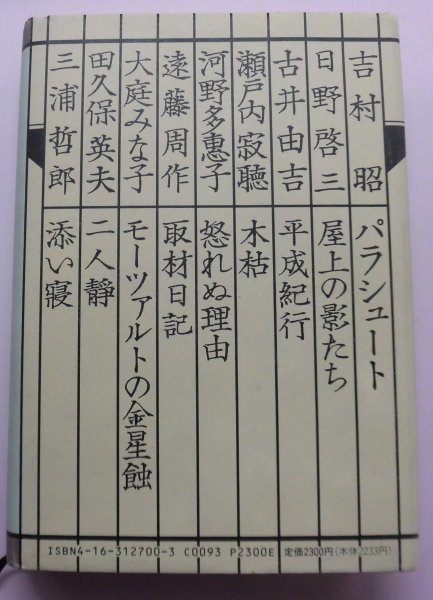 吉村 昭
パラシュート
日野啓三
屋上の影たち
古井由吉
平成紀行
瀬戸内寂聴
木枯
河野多惠子
怒れぬ理由
遠藤周作
取材日記
大庭みな子
モーツァルトの金星蝕
田久保英夫
二人静
三浦哲郎
添い寝
ISBN4-16-312700-3 C0093 P2300E 定価2300円(本体2233円)